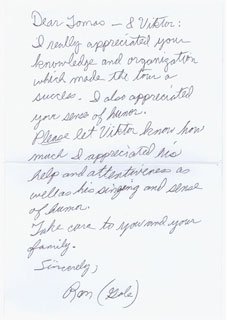 Dear Tomas — & Viktor:
I really appreciated your
knowledge and organization
which made the tour a
success. I also appreciated
your sense of humor.
Please let Viktor know how
much I appreciated his
help and attentiveness as
well as his singing and sense
of humor.
Take care to you and your
family.
Sincerely,
Ron (Gale)